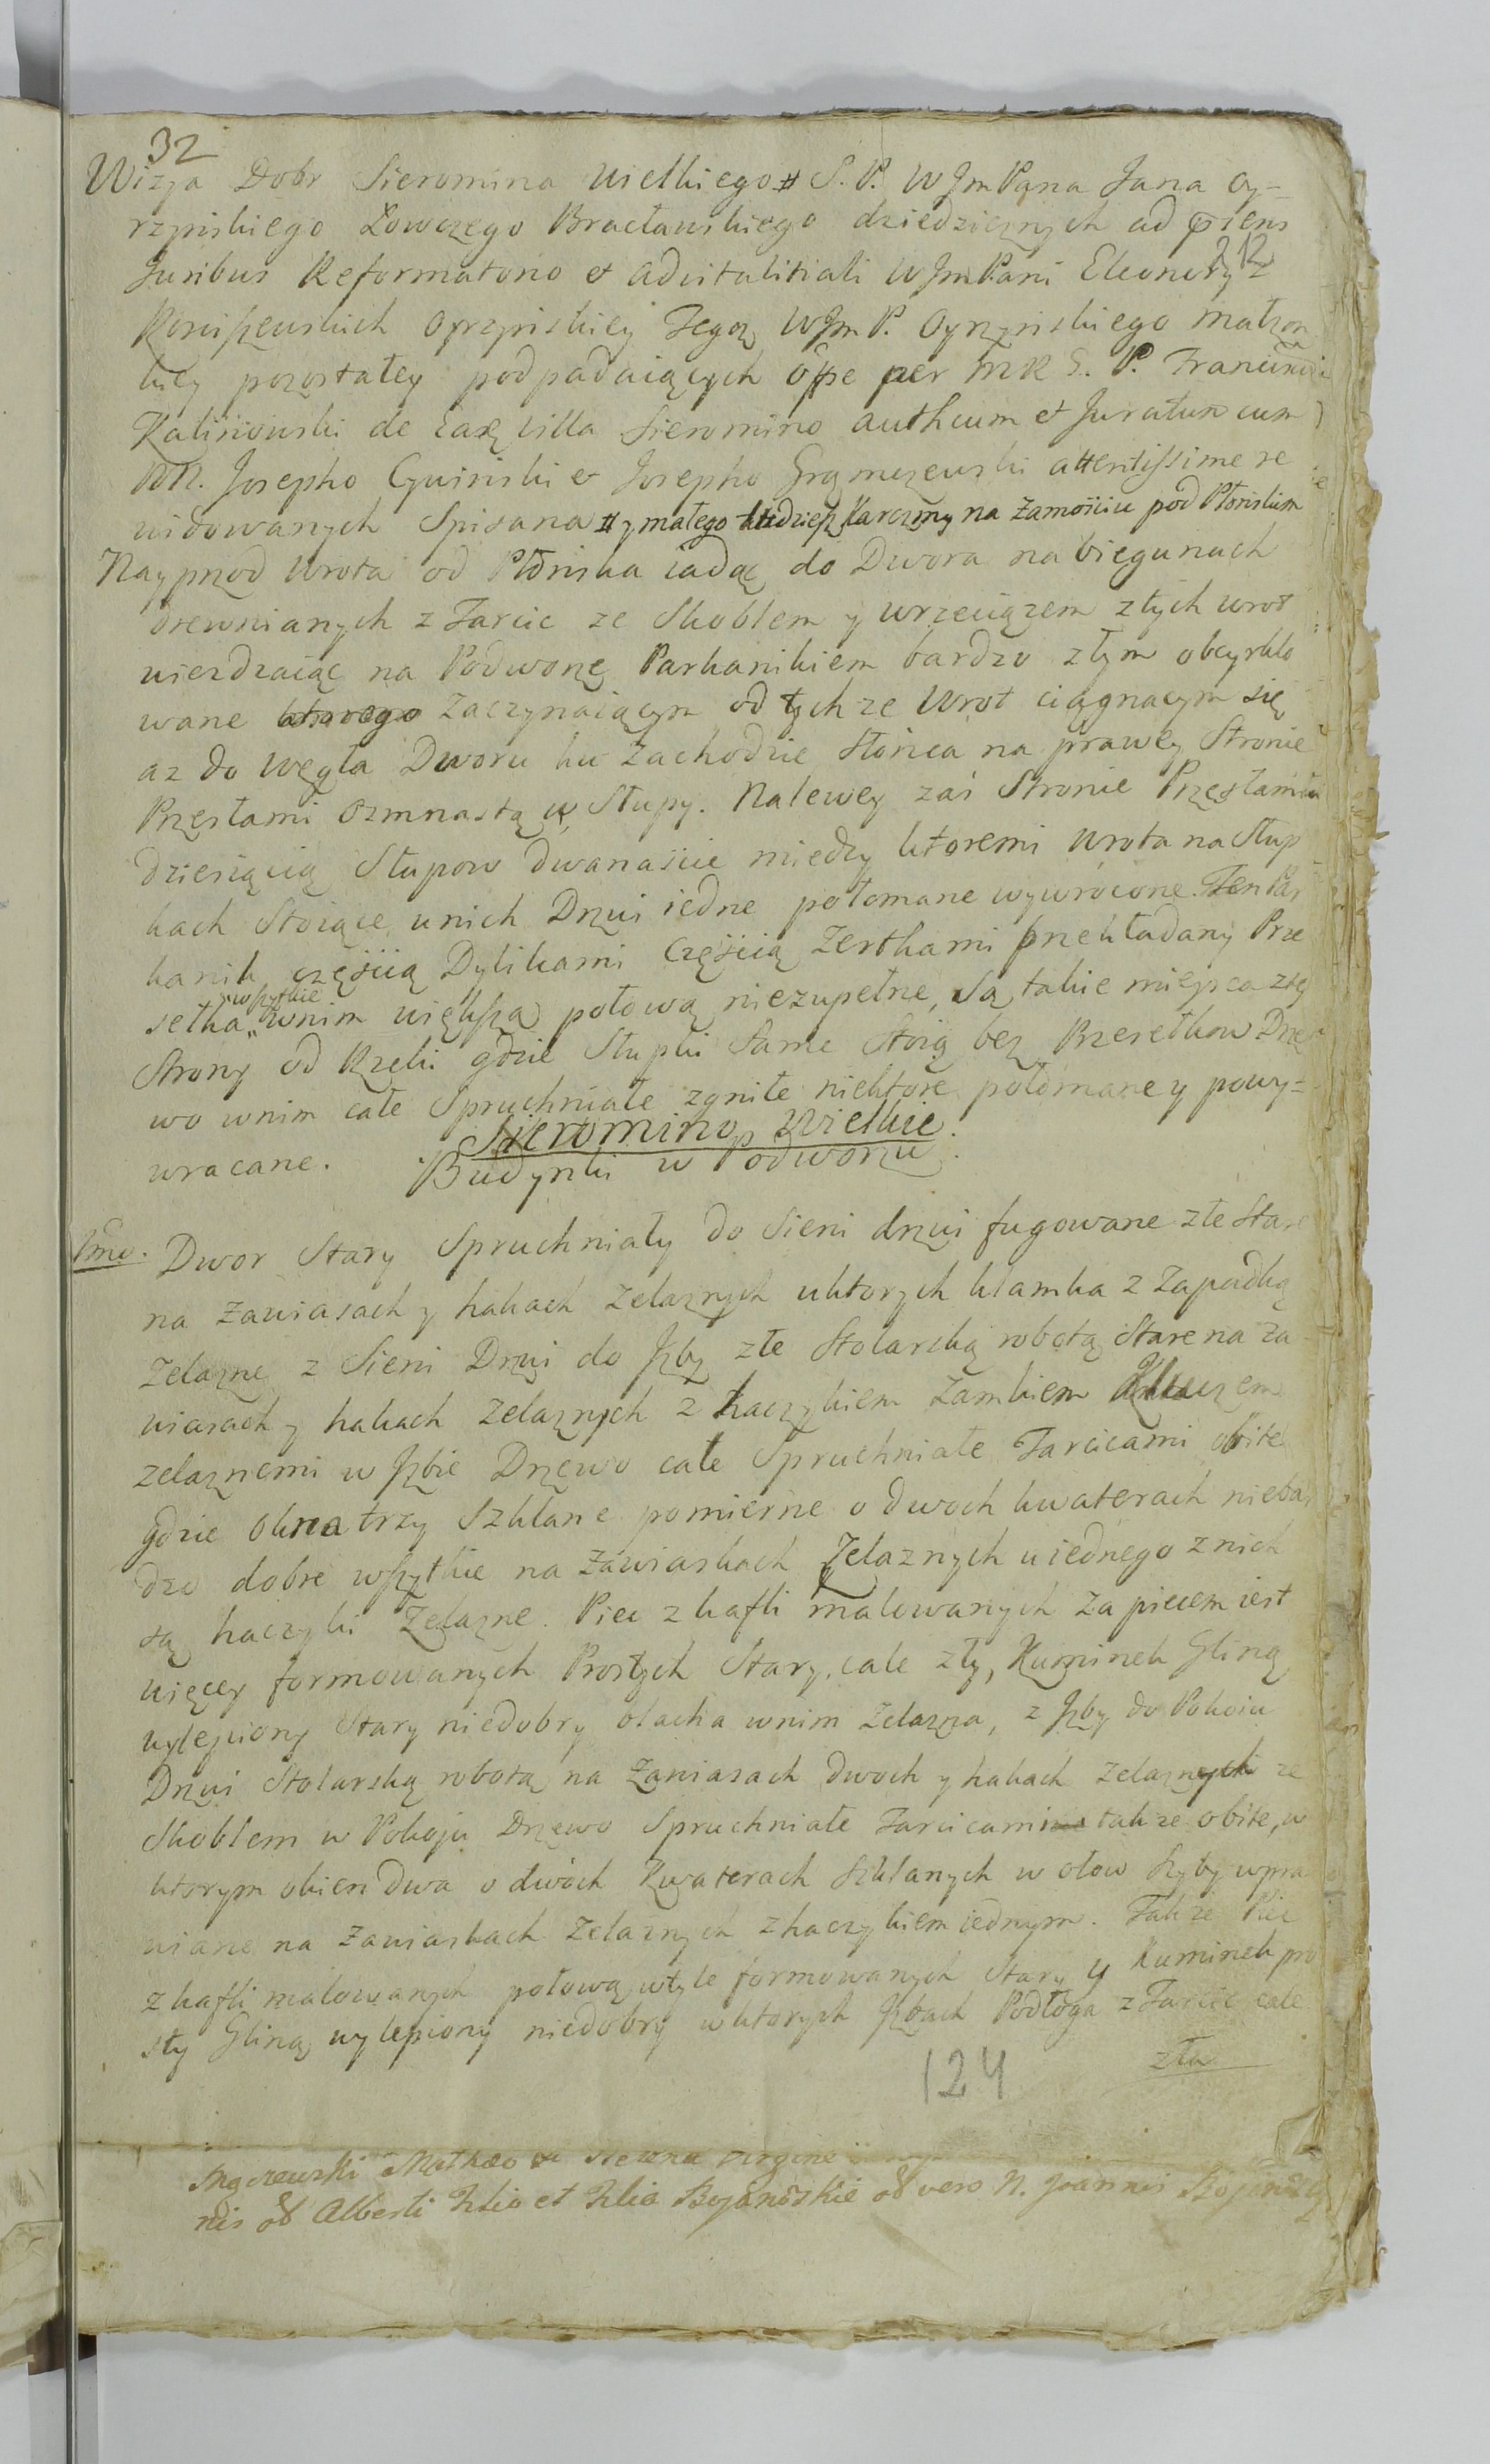 32
Wizja Dobr Sieromina Wielkiego # S. P. WJm Pana Jana Oy-
rzynskiego Łowczego Bracławskiego dziedzicznych ad praens
212
Juribus Reformatorio et advitalitiali WJm Pani Eleonory z
Koryszewskich Oyrzynskiey Tegoz WJm P. Oyrzynskiego małzon
kiey pozostałey podpadaiących offse per MR G. P.
Kalinowski de Eadę villa Sieromino authcum et Juratum cum
NN. Josepho Cywinski et Josepho attentissime re
widowanych Spisana # y małego tudziesz Karczmy na Zamościu pod Płonskim
Nayprzod Wrota od Płonska iadąc do Dwora na biegunach
drewnianych z Tarcic ze Skoblem y wrzeciązem z tych wrot
wiezdzaiąc na Podworzę Parkanikiem bardzo złym obcyrklo
wane ktorego zaczynaiącym od tychze Wrot ciągnącym się
az do węgła Dworu ku Zachodzie słońca na prawey Stronie
Przęsłami Ozmnastą w Słupy. Na lewey zaś Stronie Przęsłamia
dziesiącią Słupow dwanascie między ktoremi wrota na Słup
kach Stoiące u nich Drzwi iedne połomane wywrócone. Ten Par
kanik częścią Dylikami Częścią Zerdkami przekładany Prze
wszytkie
setka w nim większą połową niezupełne, Są takie miejsca z tey
Strony od Rzeki gdzie Słupki Same Stoią bez Przesetkow Drze
wo w nim całe Spruchniałe zgniłe niektore połomane y powy-
wracane.
Sieromino Wielkie.
Budynki w Podworzu.
1mo. Dwor Stary Spruchniały do Sieni drzwi fugowane złe Stare
na zawiasach y hakach Zelaznych u ktorych klamka z Zapadką
Zelazne z Sieni Drzwi do Jzby złe Stolarską robotą Stare na Za
wiasach y hakach Zelaznych z haczykiem Zamkiem Kluczem
zelaznemi w Jzbie Drzewo całe Spruchniałe Tarcicami obite
gdzie Okna trzy Szklane pomierne o dwoch kwaterach niebar
dzo dobre wszytkie na Zawiaskach Zelaznych u iednego z nich
są haczyki Zelazne. Piec z kafli malowanych za piecem iest
więcey formowanych Prostych Stary, cale zły, Kuminek Gliną
wylepiony Stary niedobry blacha w nim Zelazna, z Jzby do Pokoiu
Drzwi Stolarską robotą na Zawiasach dwoch y hakach Zelaznych ze
Skoblem w Pokoju Drzewo Spruchniałe Tarcicami takze obite, w
ktorym okien dwa o dwóch Kwaterach szklanych w ołow Szyby wpra
wiane na Zawiaskach Zelaznych z haczykiem iednym. Takze Piec
z kafli malowanych połową w tyle formowanych Stary y Kuminek pro
sty Gliną wylepiony niedobry w ktorych Jzbach Podłoga z Tarcic cale
zła
124
Mathaeo virgine
nis Alberti filio et filia vero N. Joannis